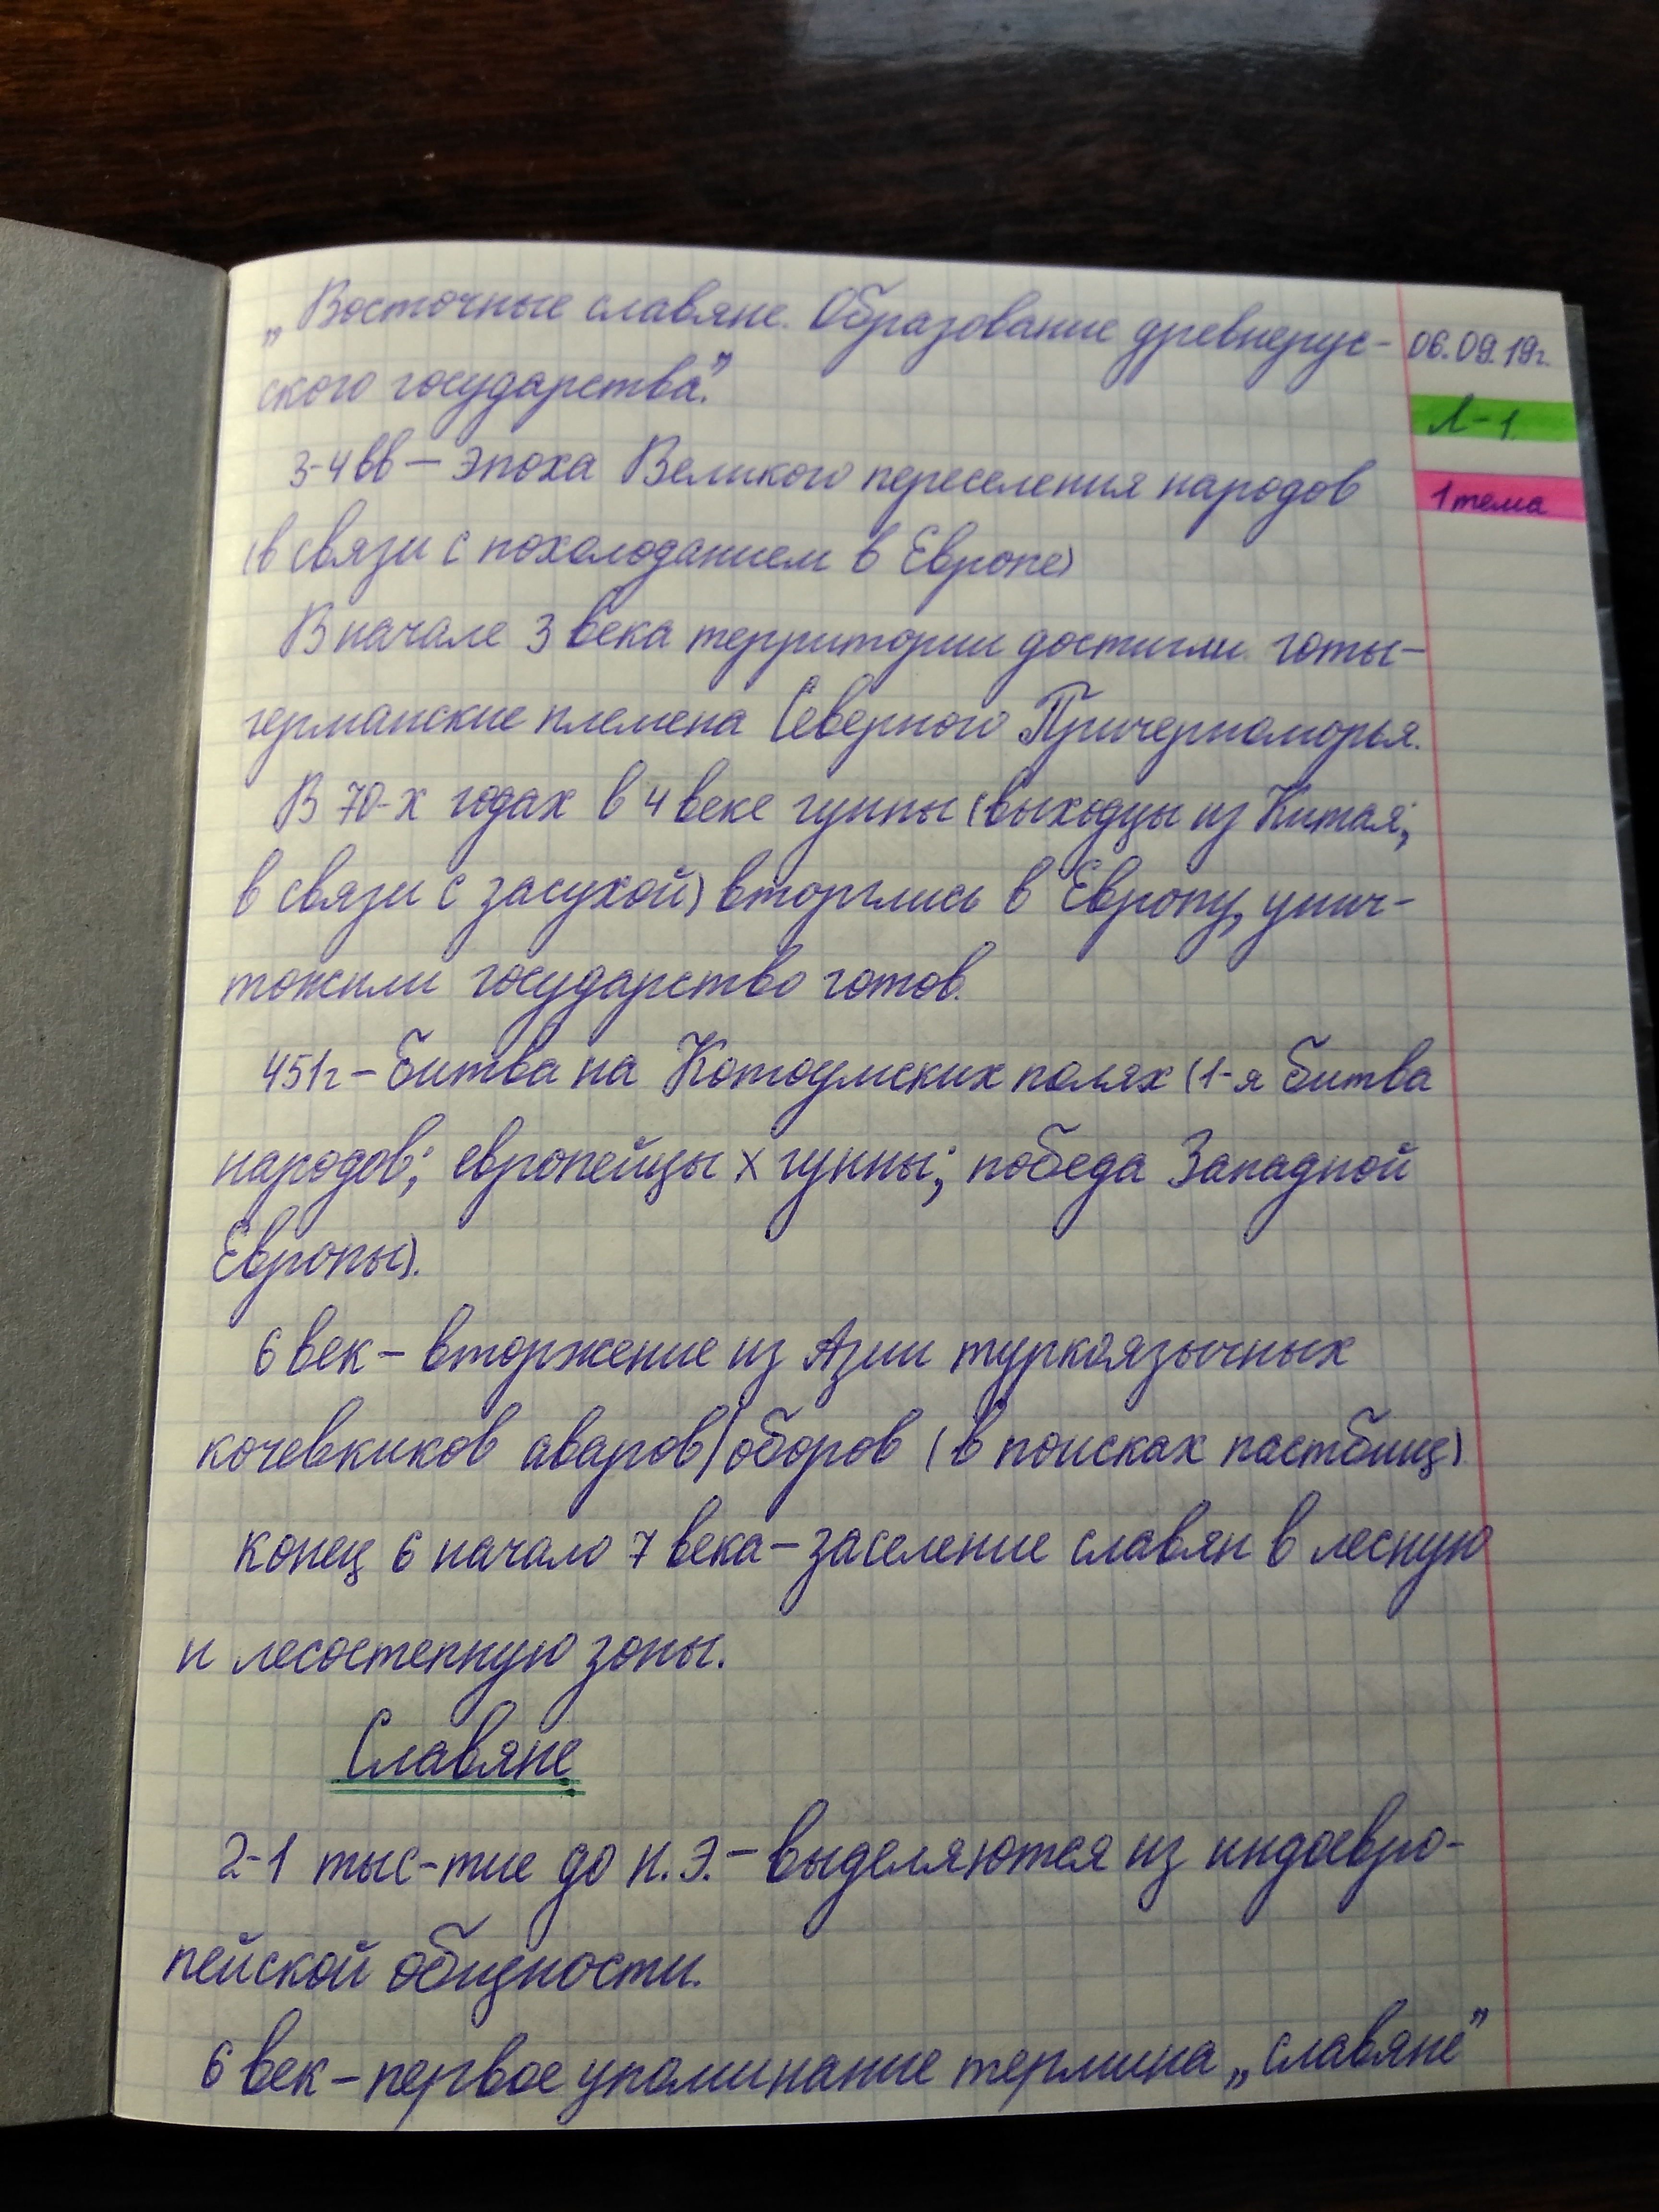 „Восточные славяне. Образование древнерус-
ского государства".
06.09.19г.
Л-1.
1 тема
3-4 вв — эпоха Великого переселения народов
(в связи с похолоданием в Европе)
В начале 3 века территории достигли готы-
германские племена Северного Причерноморья.
В 70-х годах в 4 веке гунны (выходцы из Китая;
в связи с засухой) вторглись в Европу, унич-
тожили государство готов.
451г – битва на Котоумских полях (1-я битва
народов; европейцы х гунны; победа Западной
Европы).
6 век – вторжение из Азии туркоязычных
кочевкиков аваров/оборов (в поисках пастбищ)
конец 6 начало 7 века – заселение славян в лесную
и лесостепную зоны.
Славяне
2-1 тыс-тие до н.э. – выделяются из индоевро-
пейской общности.
6 век – первое упоминание термина „славяне"